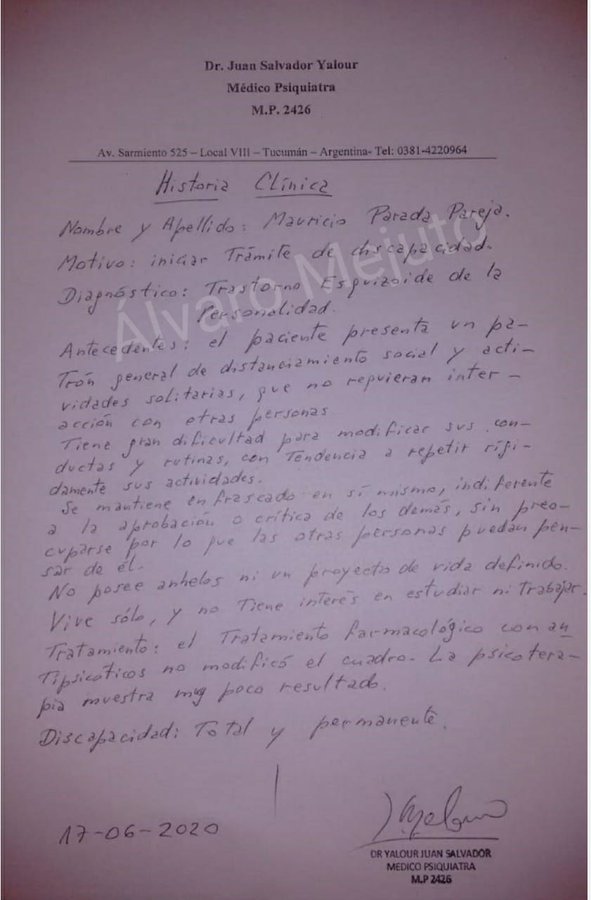 Dr. Juan Salvador Yalour
Médico Psiquiatra
M.P. 2426
Av. Sarmiento 525 – Local VIII – Tucumán – Argentina- Tel: 0381-4220964
Historia Clínica
Nombre y Apellido: Mauricio Parada Pareja.
Motivo: iniciar Trámite de discapacidad.
Diagnóstico: Trastorno Esquizoide de la
Personalidad.
Álvaro Mejuto
Antecedentes: el paciente presenta un pa-
Trón general de distanciamiento social y acti-
vidades solitarias, que no requieran inter-
acción con otras personas
Tiene gran dificultad para modificar sus con-
ductas y rutinas, con Tendencia a repetir rígi-
damente sus actividades.
Se mantiene enfrascado en sí mismo, indiferente
a la aprobación o crítica de los demás, sin preo-
cuparse por lo que las otras personas puedan pen-
sar de él.
No posee anhelos ni un proyecto de vida definido.
Vive sólo, y no Tiene interés en estudiar ni Trabajar.
Tratamiento: el Tratamiento farmacológico con an
Tipsicóticos no modificó el cuadro. La psicotera-
pia muestra muy poco resultado.
Discapacidad: Total y permanente.
17-06-2020
DR YALOUR JUAN SALVADOR
MEDICO PSIQUIATRA
M.P 2426